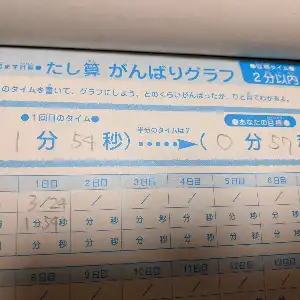 たし算 がんばりグラフ
●目標タイム●
2分以内
のタイムを書いて、グラフにしよう。どのくらいがんばったか、ひと目でわかるよ。
●1回目のタイム●
半分のタイムは?
●あなたの目標●
1分54秒)・・・・・➡(0分57
1日目 2日目 3日目 4日目 5日目 6日目
3/24 / / / / /
1分54秒 分 秒 分 秒 分 秒 分 秒 分
8日目 9日目 10日目 11日目 12日目